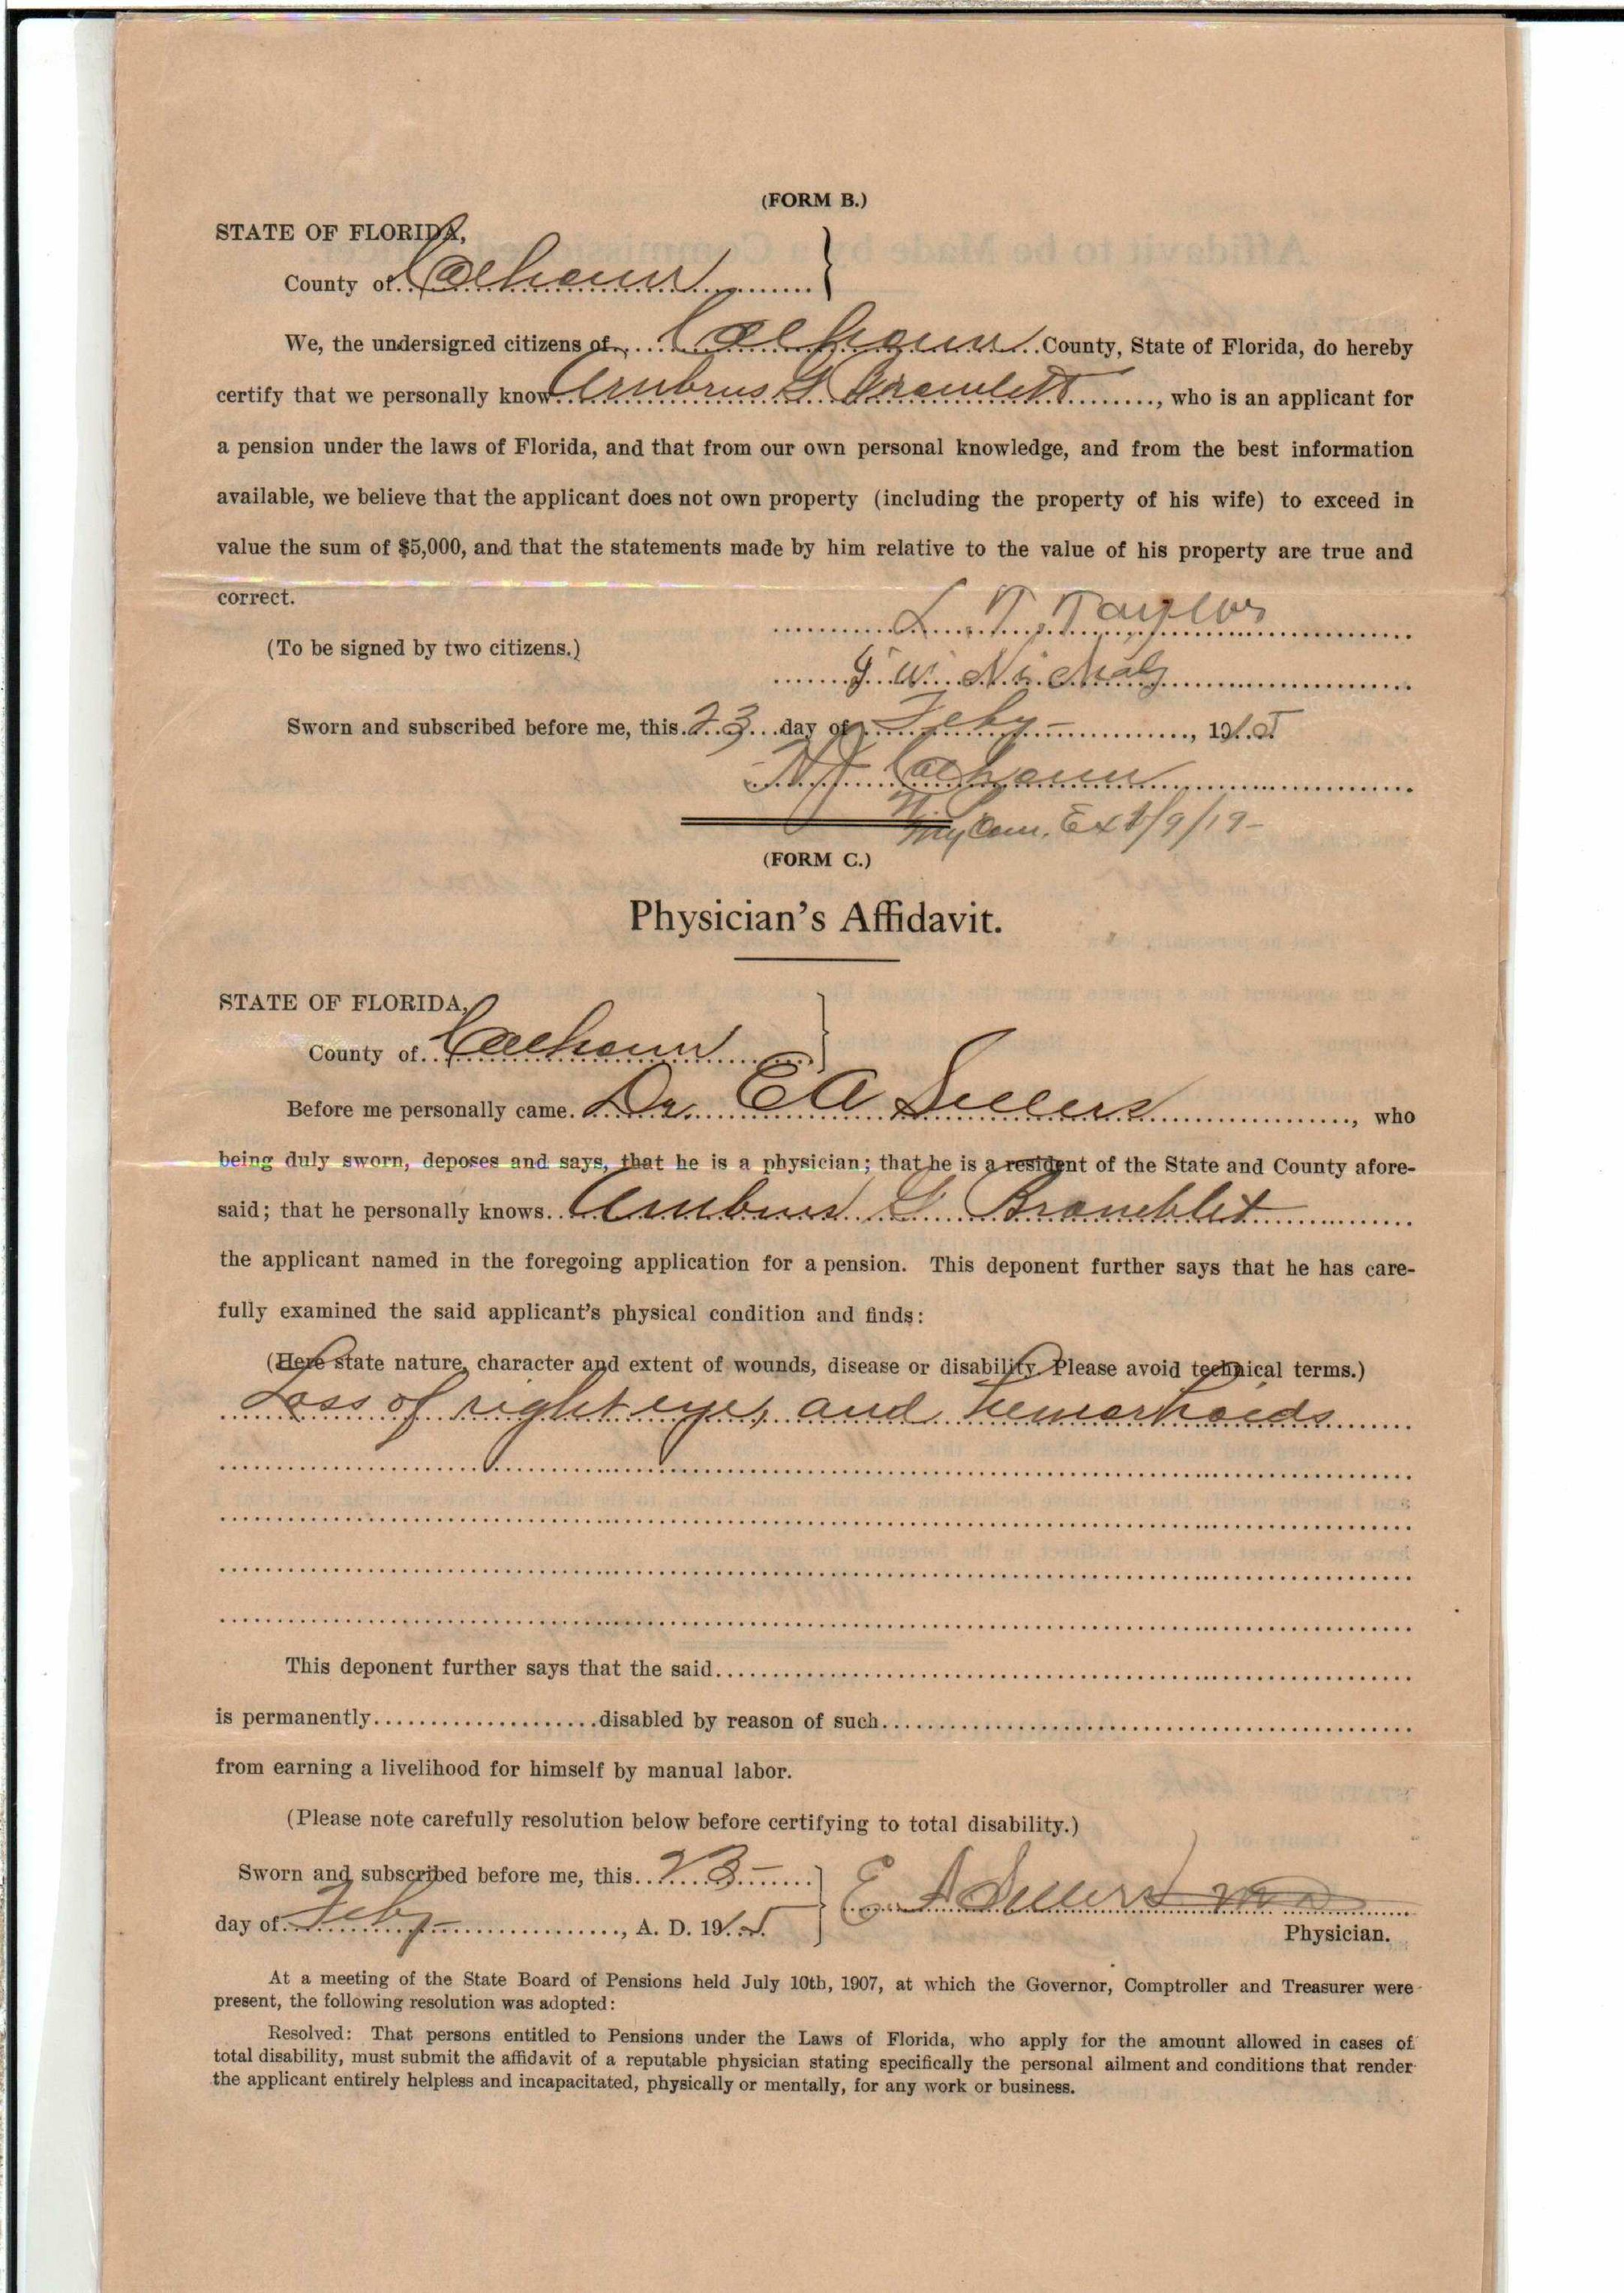 (FORM B.)
STATE OF FLORIDA,
County of Calhoun
We, the undersigned citizens of Calhoun County, State of Florida, do hereby
certify that we personally know Ambrus G Bramlett, who is an applicant for
a pension under the laws of Florida, and that from our own personal knowledge, and from the best information
available, we believe that the applicant does not own property (including the property of his wife) to exceed in
value the sum of $5,000, and that the statements made by him relative to the value of his property are true and
correct.
L. T. Taylor
(To be signed by two citizens.)
J. W. Nichols
Sworn and subscribed before me, this 23 day of Feby, 1915
Calhoun
My Com. Ex 8/9/19-
(FORM C.)
Physician's Affidavit.
STATE OF FLORIDA,
County of Calhoun
Before me personally came Dr. E A Sellers, who
being duly sworn, deposes and says, that he is a physician; that he is a resident of the State and County afore-
said; that he personally knows Ambrus G Bramblet
the applicant named in the foregoing application for a pension. This deponent further says that he has care-
fully examined the said applicant's physical condition and finds:
(Here state nature, character and extent of wounds, disease or disability. Please avoid technical terms.)
Loss of right eye, and hemorhoids
This deponent further says that the said
is permanently disabled by reason of such
from earning a livelihood for himself by manual labor.
(Please note carefully resolution below before certifying to total disability.)
Sworn and subscribed before me, this 23-
day of Feby-, A. D. 1915
E A Sellers MD
Physician.
At a meeting of the State Board of Pensions held July 10th, 1907, at which the Governor, Comptroller and Treasurer were
present, the following resolution was adopted:
Resolved: That persons entitled to Pensions under the Laws of Florida, who apply for the amount allowed in cases of
total disability, must submit the affidavit of a reputable physician stating specifically the personal ailment and conditions that render
the applicant entirely helpless and incapacitated, physically or mentally, for any work or business.